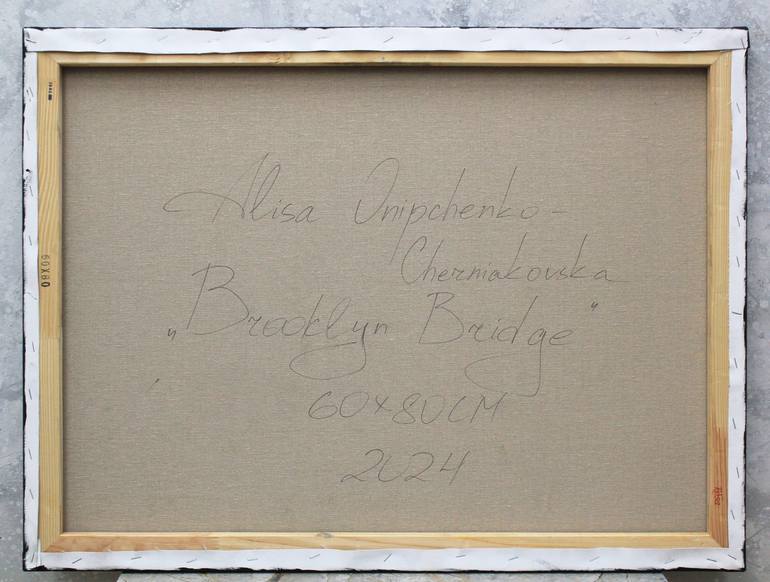 Alisa Onipchenko-
Cherniakovska
„Brooklyn Bridge“
60x80CM
2024
60X80